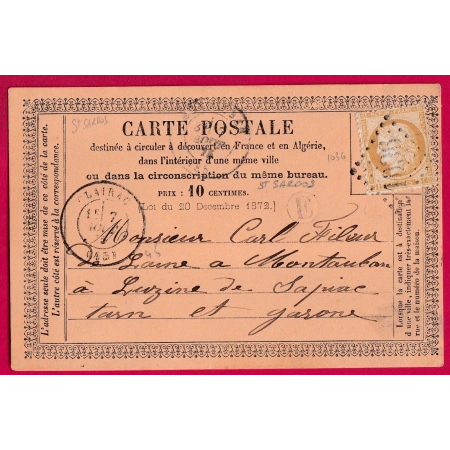 St SARDOS
CARTE POSTALE
destinée à circuler à découvert en France et en Algérie,
dans l'intérieur d'une même ville
ou dans la circonscription du même bureau.
PRIX : 10 CENTIMES.
(Loi du 20 Décembre 1872.)
1036
St SARDOS
E
CLAIRAC
(45)
45
Monsieur Carl Fileur
Laine a Montauban
à Luzine de Sapiac
tarn et garone
L'adresse seule doit être mise de ce côté de la carte.
L'autre côté est réservé à la correspondance.
Lorsque la carte est à destination
d'une ville, indiquer très-exactement la
rue et le numéro de la maison.